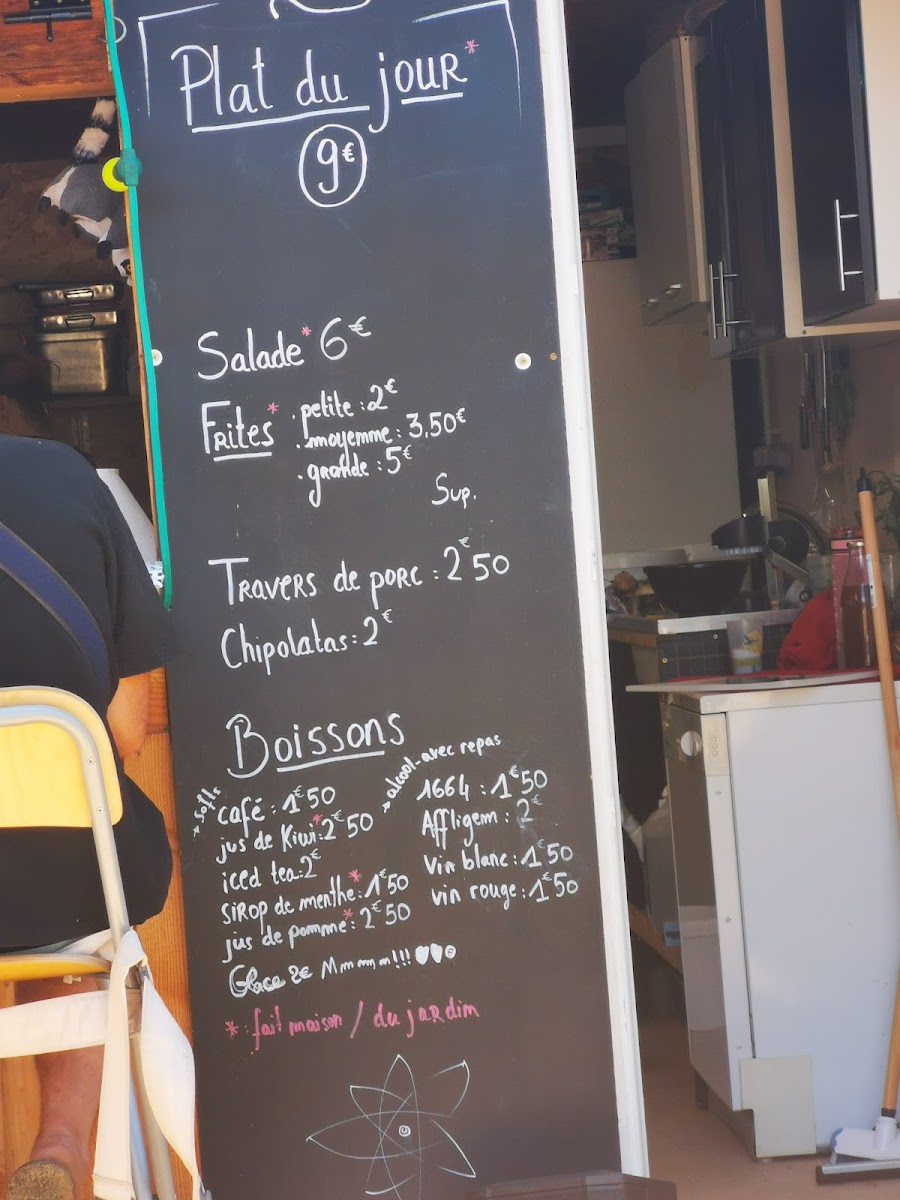 Plat du jour*
9€
Salade* 6€
Frites* . petite : 2€
. moyenne : 3,50€
. grande : 5€
Sup.
Travers de porc : 2€50
Chipolatas : 2€
Boissons
→ softs
café : 1€50
jus de Kiwi* : 2€50
iced tea : 2€
sirop de menthe* : 1€50
jus de pomme* : 2€50
→ alcool - avec repas
1664 : 1€50
Affligem : 2€
Vin blanc : 1€50
vin rouge : 1€50
Glace 2€ Mmmmm!!!
* : fait maison / du jardim